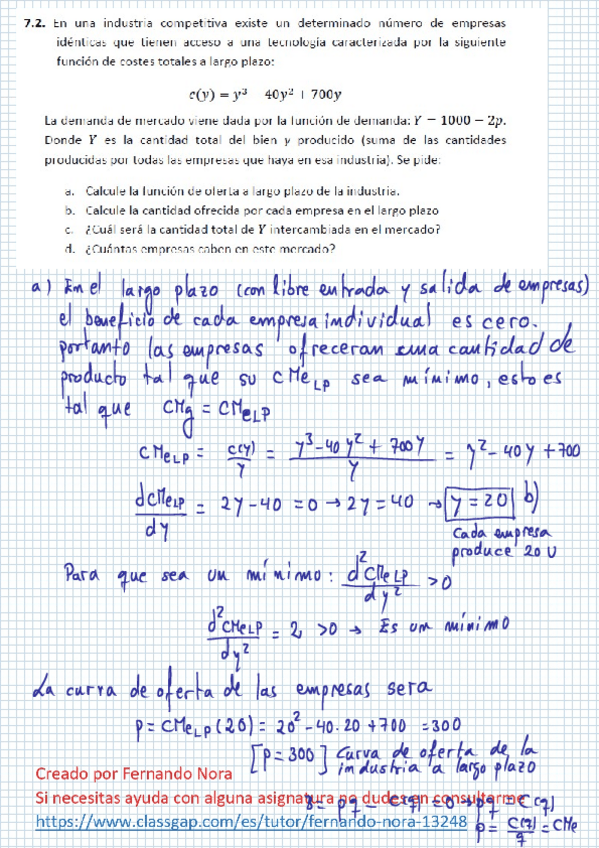 7.2. En una industria competitiva existe un determinado número de empresas
idénticas que tienen acceso a una tecnología caracterizada por la siguiente
función de costes totales a largo plazo:
c(y) = y³ 40y² + 700y
La demanda de mercado viene dada por la función de demanda: Y = 1000 − 2p.
Donde Y es la cantidad total del bien y producido (suma de las cantidades
producidas por todas las empresas que haya en esa industria). Se pide:
a. Calcule la función de oferta a largo plazo de la industria.
b. Calcule la cantidad ofrecida por cada empresa en el largo plazo
c. ¿Cuál será la cantidad total de Y intercambiada en el mercado?
d. ¿Cuántas empresas caben en este mercado?
a) En el largo plazo (con libre entrada y salida de empresas)
el beneficio de cada empresa individual es cero.
portanto las empresas ofreceran una cantidad de
producto tal que su CMe_LP sea mínimo, esto es
tal que CMg = CMe_LP
CMe_LP = c(y)/y = (y³ - 40y² + 700y)/y = y² - 40y + 700
dCMe_LP/dy = 2y - 40 = 0 → 2y = 40 → y = 20 b)
Cada empresa
produce 20 U
Para que sea un mínimo: d²CMe_LP/dy² > 0
d²CMe_LP/dy² = 2 > 0 → Es un mínimo
La curva de oferta de las empresas sera
p = CMe_LP(20) = 20² - 40·20 + 700 = 300
[p = 300] Curva de oferta de la
industria a largo plazo
Creado por Fernando Nora
Si necesitas ayuda con alguna asignatura no dudes en consultarme
B = pq - C(q) = 0 → pq = C(q)
https://www.classgap.com/es/tutor/fernando-nora-13248
p = C(q)/q = CMe